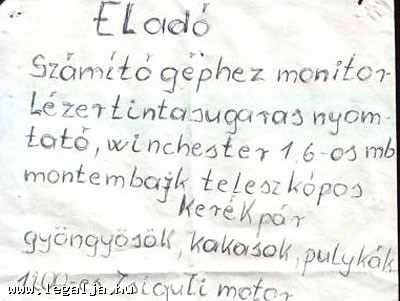 ELadó
Számító géphez monitor
Lézertintasugaras nyom-
tató, winchester 1.6-os mb
montembajk teleszkópos
kerékpár
gyöngyösök, kakasok, pulykák
1100-es Zsiguli motor
www.legalja.hu